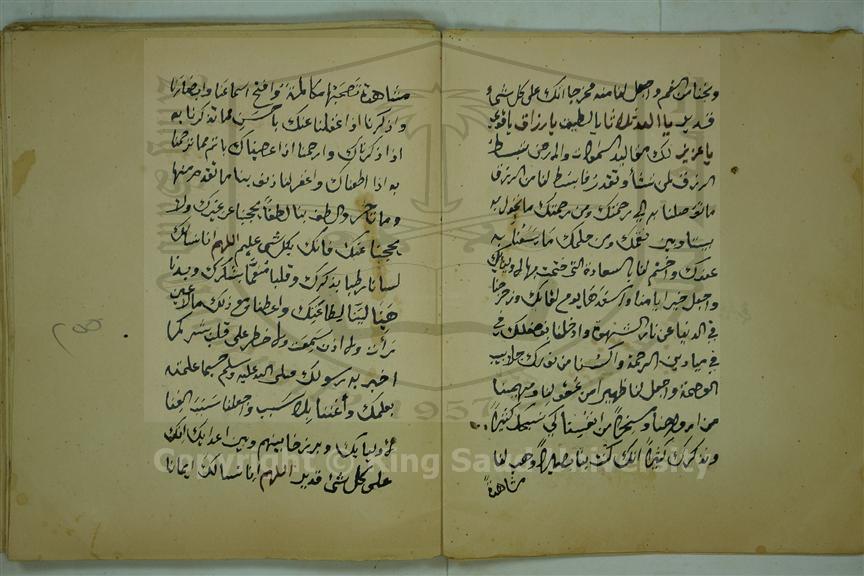 ونجنا من الغم واجعل لنا منه مخرجا انك على كل شئ
قدير يا الله ثلاثا يا لطيف يا رزاق يا قوي
يا عزيز لك مقاليد السموات والارض تبسط
الرزق لمن تشأ وتقدر فابسط لنا من الرزق
ما توصلنا به الى رحمتك ومن رحمتك ما تحول به
بيننا وبين نقمك ومن حلمك ما يسعنا به
عفوك واختم لنا بالسعادة التي ختمت بها لاوليائك
واجعل خير ايامنا واسعدها يوم لقائك وزحزحنا
في الدنيا عن نار الشهوة وادخلنا بفضلك في
في ميادين الرحمة واكسنا من نورك جلابيب
العصمة واجعل لنا ظهيرا من عقولنا ومهيمنا
من ارواحنا ومسخرا من انفسنا كي نسبحك كثيرا
ونذكرك كثيرا انك كنت بنا بصيرا وهب لنا
مشاهدة
مشاهدة تصحبها مكالمة وافتح اسماعنا وابصارنا
واذكرنا اذا غفلنا عنك باحسن مما تذكرنا به
اذا ذكرناك وارحمنا اذا عصيناك باتم مما ترحمنا
به اذا اطعناك واغفر لنا ذنوبنا ما تقدم منها
وما تاخر والطف بنا لطفا يحجبنا عن غيرك ولا
يحجبنا عنك فانك بكل شئ عليم اللهم انا نسالك
لسانا رطبا بذكرك وقلبا منعما بشكرك وبدنا
هينا لينا لطاعتك واعطنا مع ذلك ما لا عين
رأت ولا اذن سمعت ولا خطر على قلب بشر كما
اخبر به رسولك صلى الله عليه وسلم حسبما علمته
بعلمك واغننا بلا سبب واجعلنا سبب الغنا
لاوليائك وبرزخا بينهم وبين اعدائك انك
على كل شئ قدير اللهم انا نسالك ايمانا
Copyright © King Saud University
1957